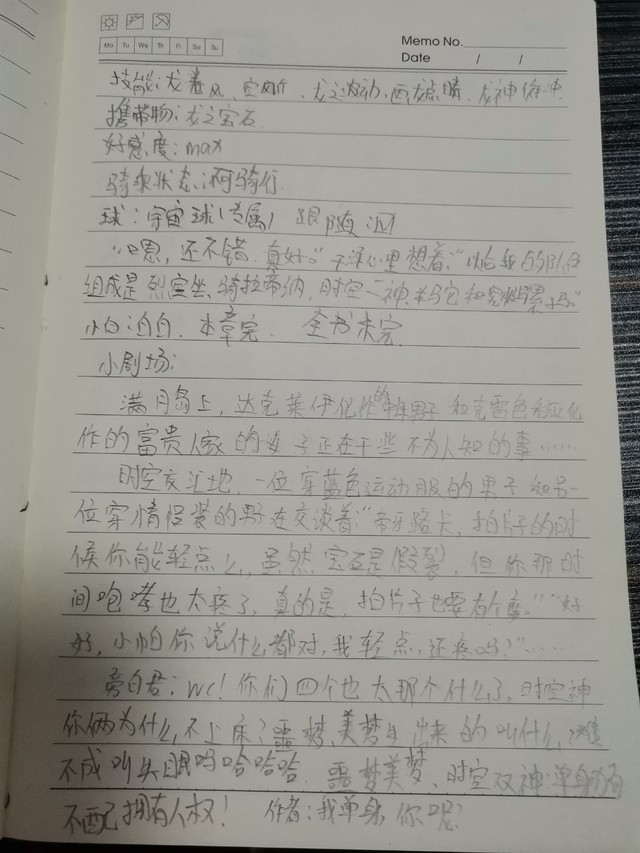 Mo Tu We Th Fr Sa Su
Memo No.
Date / /
技能:龙卷风、空间斩、龙之波动、画龙点睛、龙神俯冲
携带物:龙之宝石
好感度:max
骑乘状态:可骑行
球:宇宙球(专属) 跟随:沉
“嗯,还不错,真好。”洋心里想着,“帕我的队伍
组成是烈空坐、骑拉帝纳,时空二神
小白:白白,本章完。 全书未完
小剧场:
满月岛上,达克莱伊化作的男子和克雷色利亚化
作的富贵人家的女子正在干些不为人知的事……
时空交汇地,一位穿蓝色运动服的男子和另一
位穿情侣装的男在交谈着:“帝牙路卡,拍片子的时
候你能轻点么,虽然宝石是假裂,但你那时
间咆哮也太疼了,真的是,拍片子也要有个度。”“好
好,小帕你说什么都对,我轻点,还疼吗?”……
旁白君:wc!你们四个也太那个什么了,时空神
你俩为什么不上床?噩梦、美梦生出来的叫什么,难
不成叫失眠吗哈哈哈 噩梦美梦、时空双神:单身狗
不配拥有人权! 作者:我单身,你呢?